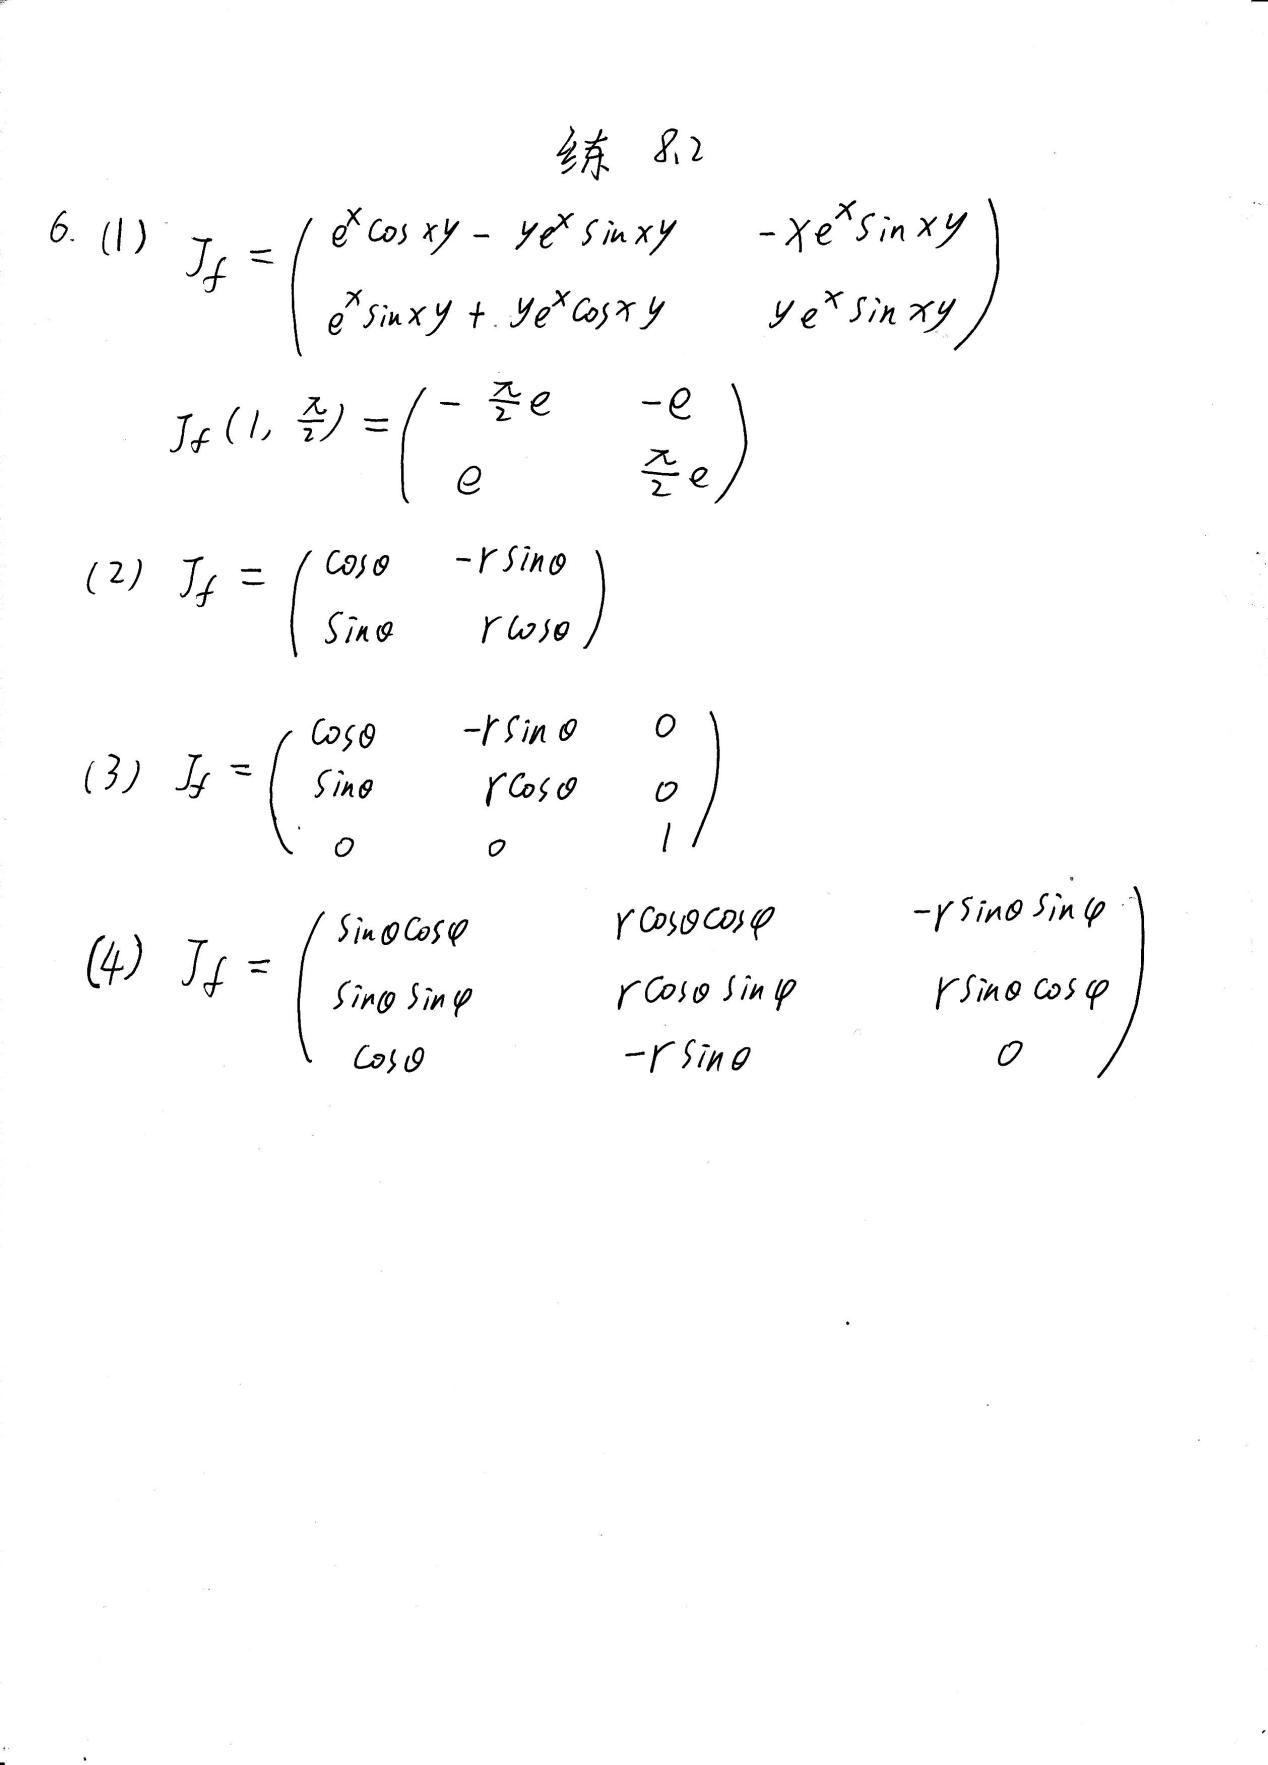 练 8.2
6. (1) J_f = ( e^x cos xy - ye^x sin xy   -xe^x sin xy
e^x sin xy + ye^x cos xy   ye^x sin xy )
J_f (1, π/2) = ( - π/2 e   -e
e   π/2 e )
(2) J_f = ( cosθ   -r sinθ
sinθ   r cosθ )
(3) J_f = ( cosθ   -r sinθ   0
sinθ   r cosθ   0
0   0   1 )
(4) J_f = ( sinθ cosφ   r cosθ cosφ   -r sinθ sinφ
sinθ sinφ   r cosθ sinφ   r sinθ cosφ
cosθ   -r sinθ   0 )